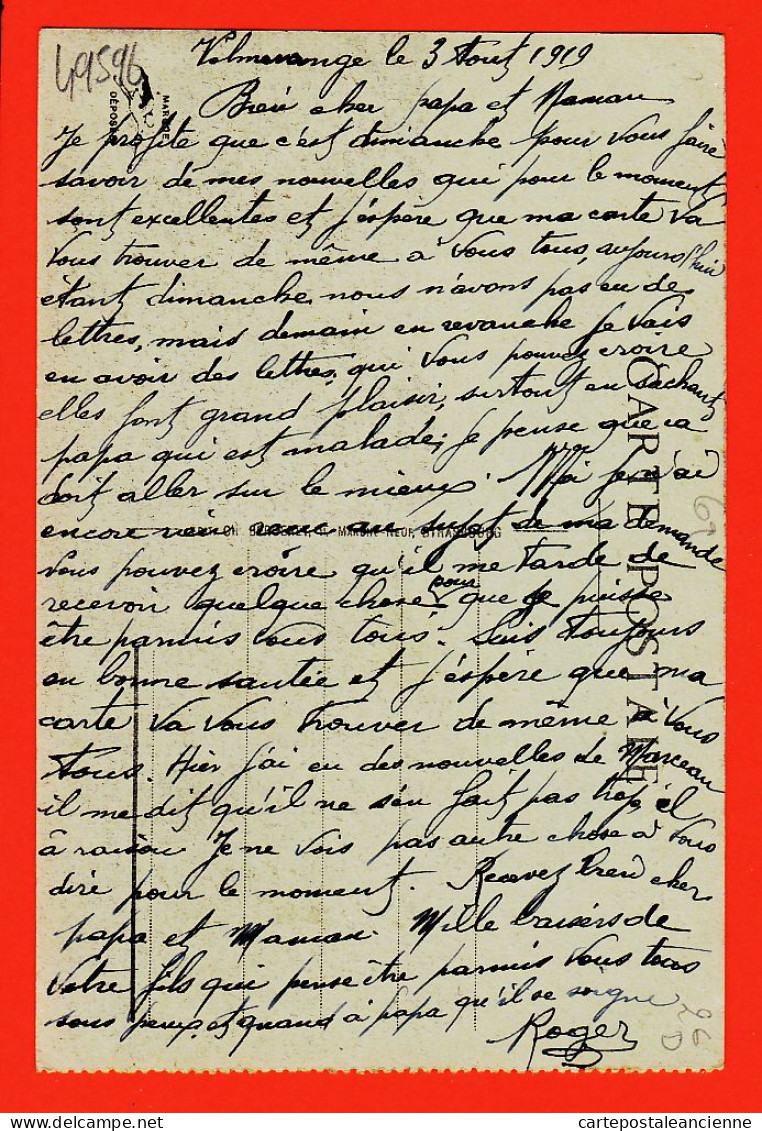 49596
MARQUE DÉPOSÉE
Volmerange le 3 Aout 1919
Bien cher papa et Maman
Je profite que c'est dimanche pour vous faire
savoir de mes nouvelles qui pour le moment
sont excellentes et j'espère que ma carte va
vous trouver de même à vous tous, aujourd'hui
étant dimanche nous n'avons pas eu de
lettres, mais demain en revanche je vais
en avoir des lettres, qui vous pouvez croire
elles font grand plaisir, surtout en sachant
papa qui est malade, je pense que ca
doit aller sur le mieux. Moi je n'ai
encore rien au sujet de ma demande
MARCHÉ NEUF, STRASBOURG
vous pouvez croire qu'il me tarde de
recevoir quelque chose pour que je puisse
être parmis vous tous. Suis toujours
en bonne santée et j'espère que ma
carte va vous trouver de même à vous
tous. Hier j'ai eu des nouvelles de Marceau
il me dit qu'il ne s'en fait pas trop, il
à raison. Je ne vois pas autre chose à vous
dire pour le moment. Recevez bien cher
papa et Maman. Mille baisers de
votre fils qui pense être parmis vous tous
sous peux, et quand à papa qu'il se soigne
Roger
CARTE POSTALE
26
D
delcampe.net
cartepostaleancienne